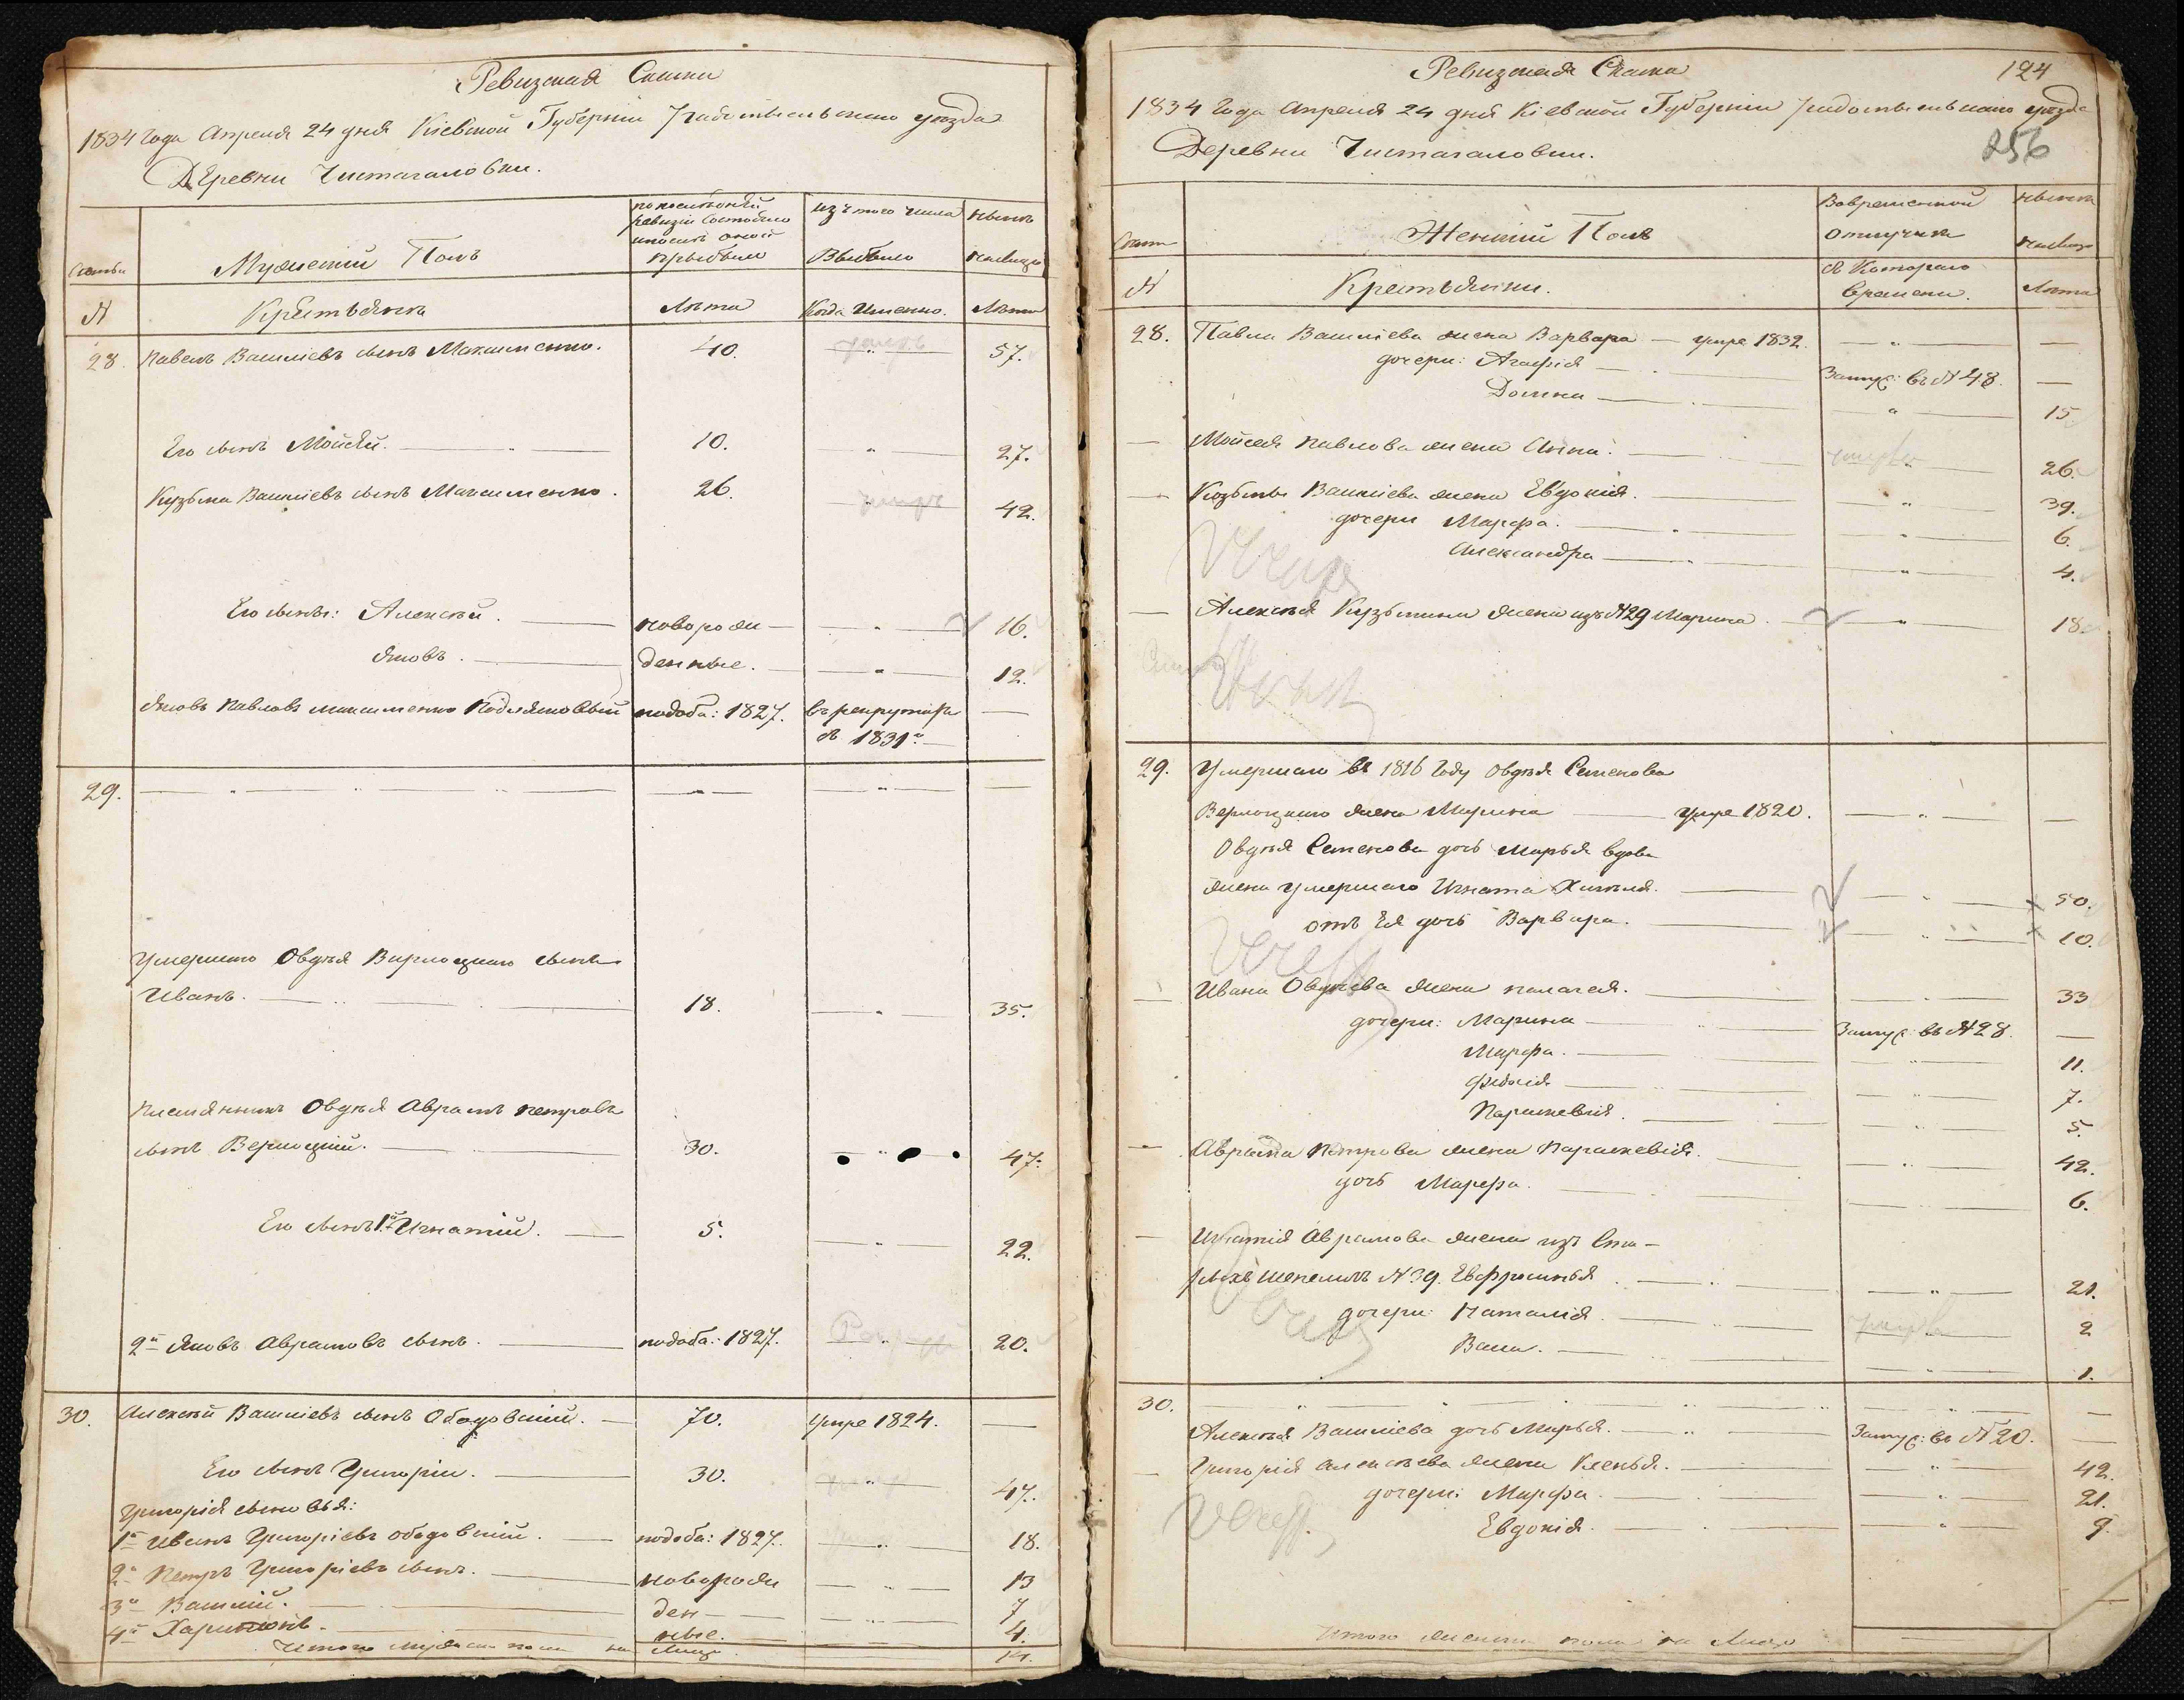 Ревизская Сказка
1834 Года Апреля 24 дня Кіевской Губерніи Радомысльского уезда
Деревни Чистагаловки.
по последней ревизіи состояло и после оной прибыло
изъ того числа Выбыло
ныне налицо
Семьи
Мужеский Полъ
№
Крестьяне
Лета
Когда Именно.
Лета
28. Павелъ Василіевъ сынъ Максименко. 40. " 57.
Его сынъ Мойсей. 10. " 27.
Кузьма Василіевъ сынъ Максименко. 26. " 42.
умеръ
Его сыны: Алексей. новорож " 16.
Яковъ. денные. " 12.
Яковъ Павловъ Максименко подоба: 1827. въ рекрутахъ
съ 1831г.
29. " " "
Умершаго Овдея Верлоцкаго сынъ
Иванъ. 18. " 35.
Племянникъ Овдея Аврамъ Петровъ
сынъ Верлоцкій. 30. " 47.
Его сынъ 1й Игнатій. 5. " 22.
2й Яковъ Аврамовъ сынъ. подоба: 1827. " 20.
30. Алексей Василіевъ сынъ Ободовскій. 70. умре 1824.
Его сынъ Григорій. 30. " 47.
Григорія сыновья:
1й Иванъ Григоріевъ Ободовскій. подоба: 1827. " 18.
2й Петръ Григоріевъ сынъ. новорож " 13
3й Василій. ден " 7
4й Харитонъ. ные. 4.
Итого мужеска пола на лицо 14.
Ревизская Сказка 124
1834 Года Апреля 24 дня Кіевской Губерніи Радомысльского уезда
Деревни Чистагаловки. 256
Семьи
Женскій Полъ
Во временной отлучке
ныне налицо
№
Крестьянки.
съ Котораго времени.
Лета
28. Павла Василіева жена Варвара умре 1832. "
дочери: Агафія Замуж: въ №48.
Домна " 15.
Мойсея Павлова жена Анна. " 26.
умерла
Козьмы Василіева жена Евдокія. " 39.
дочери Марфа. " 6.
Александра " 4.
Алексея Кузьмина жена изъ №29 Марина. " 18.
29. Умершаго въ 1816 Году Овдея Семенова
Верлоцкаго жена Марина умре 1820. "
Овдея Семенова дочь Марья вдова
жена умершаго Игната Химыля. " 50.
отъ Ея дочь Варвара. " 10.
Ивана Овдеева жена Пелагея. " 33
дочери: Марина Замуж: въ №28.
Марфа. " 11.
Фидосія " 7.
Параскевія. " 5.
Аврама Петрова жена Параскевія. " 42.
дочь Марфа. 6.
Игнатія Аврамова жена изъ Ста-
рыхъ Шепеличъ №39. Евфросинья. " 21.
дочери: Наталія. " 2
Васса. " 1.
30. " "
Алексея Василіева дочь Марья. Замуж: въ №20.
Григорія Алексеева жена Ксенья. " 42.
дочери: Марфа. " 21.
Евдокія. " 9.
Итого женска пола на лицо